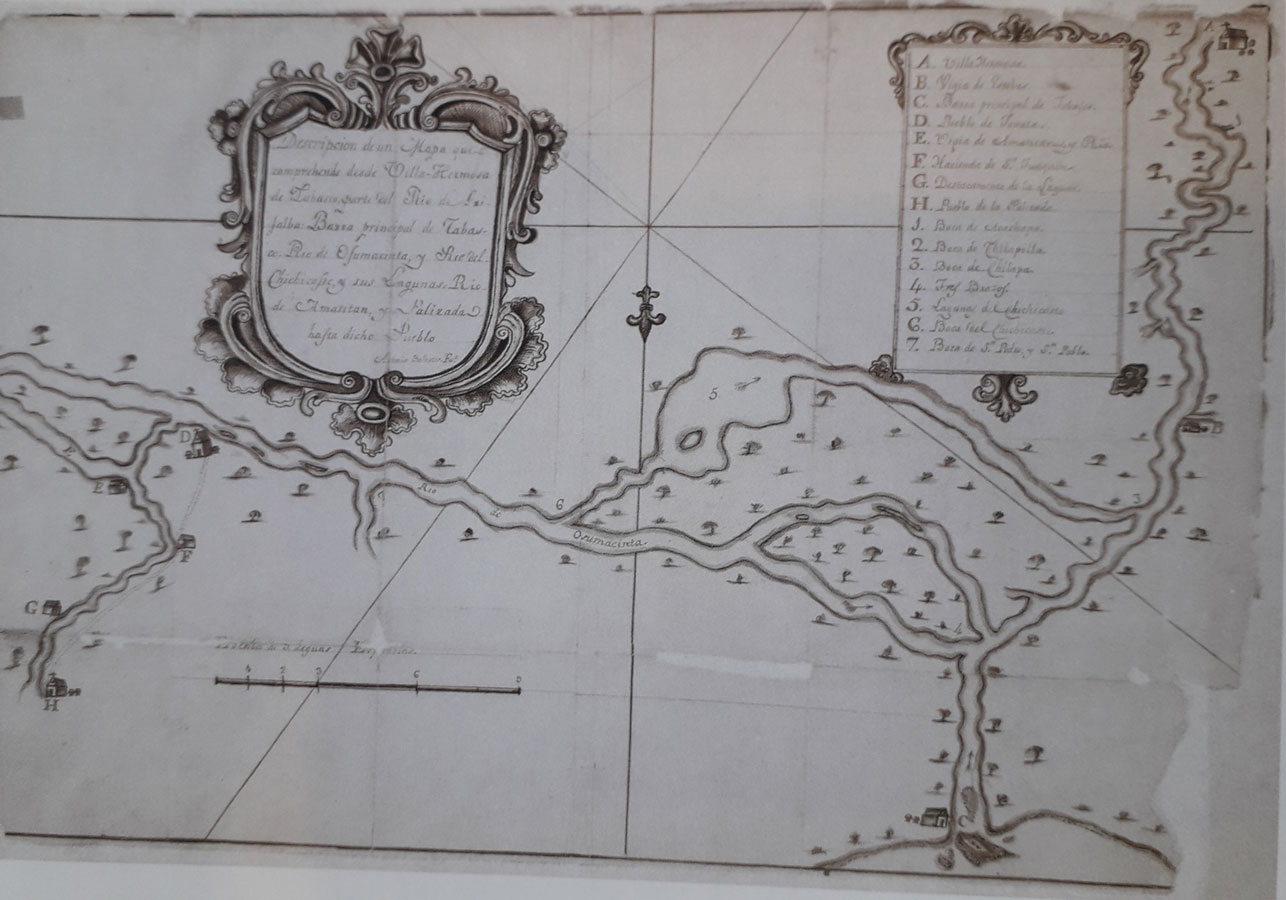 Descripcion de un Mapa que
comprehende desde Villa-Hermosa
de Tabasco, parte del Rio de Gri
jalba: Barra principal de Tabas-
co: Rio de Osumacinta, y Rio del
Chichicaste, y sus Lagunas: Rio
de Amatitan, y Palizada
hasta dicho Pueblo
A. Villa Hermosa.
B. Vigia de
C. Barra principal de Tabasco.
D. Pueblo de
E. Vigia de y Rio
F. Hacienda de Sn.
G. Destacamento de la Laguna.
H. Pueblo de la Palizada
1. Boca de
2. Boca de Chilapilla
3. Boca de Chilapa
4. Tres Brazos
5. Lagunas del Chichicaste
6. Boca del Chichicaste
7. Boca de Sn. Pedro, y Sn. Pablo.
A
B
3
5
4
6
7
D
E
E
F
G
H
Rio
de
Osumacinta
1
4
C
de Leguas